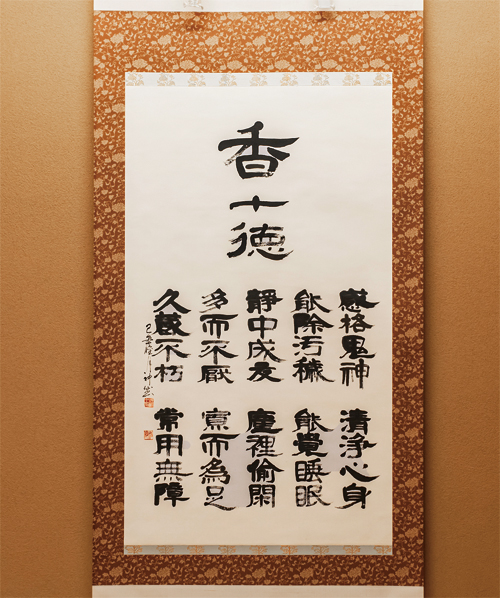 香十徳
感格鬼神 清浄心身
能除汚穢 能覺睡眠
靜中成友 塵裡偷閑
多而不厭 寡而為足
久蔵不朽 常用無障